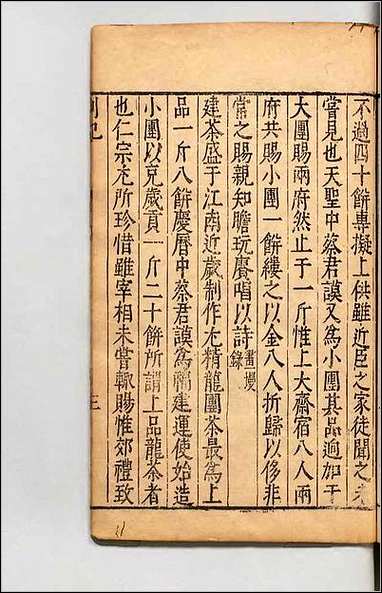 不過四十餅專擬上供雖近臣之家徒聞之未
嘗見也天聖中蔡君謨又為小團其品迥加于
大團賜兩府然止于一斤惟上大齋宿八人兩
府共賜小團一餅縷之以金八人折歸以侈非
常之賜親知瞻玩賡唱以詩畫墁錄
建茶盛于江南近歲制作尤精龍團茶最為上
品一斤八餅慶曆中蔡君謨為福建運使始造
小團以充歲貢一斤二十餅所謂上品龍茶者
也仁宗尤所珍惜雖宰相未嘗輒賜惟郊禮致